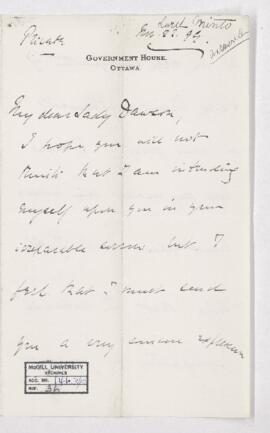 Private
Lord Minto
Nov. 22. 99.
answered
GOVERNMENT HOUSE.
OTTAWA.
My dear Lady Dawson,
I hope you will not
think that I am intruding
myself upon you in your
irreparable sorrow but I
feel that I must send
you a very sincere expression
McGILL UNIVERSITY
ARCHIVES
ACC. NO.
REF.